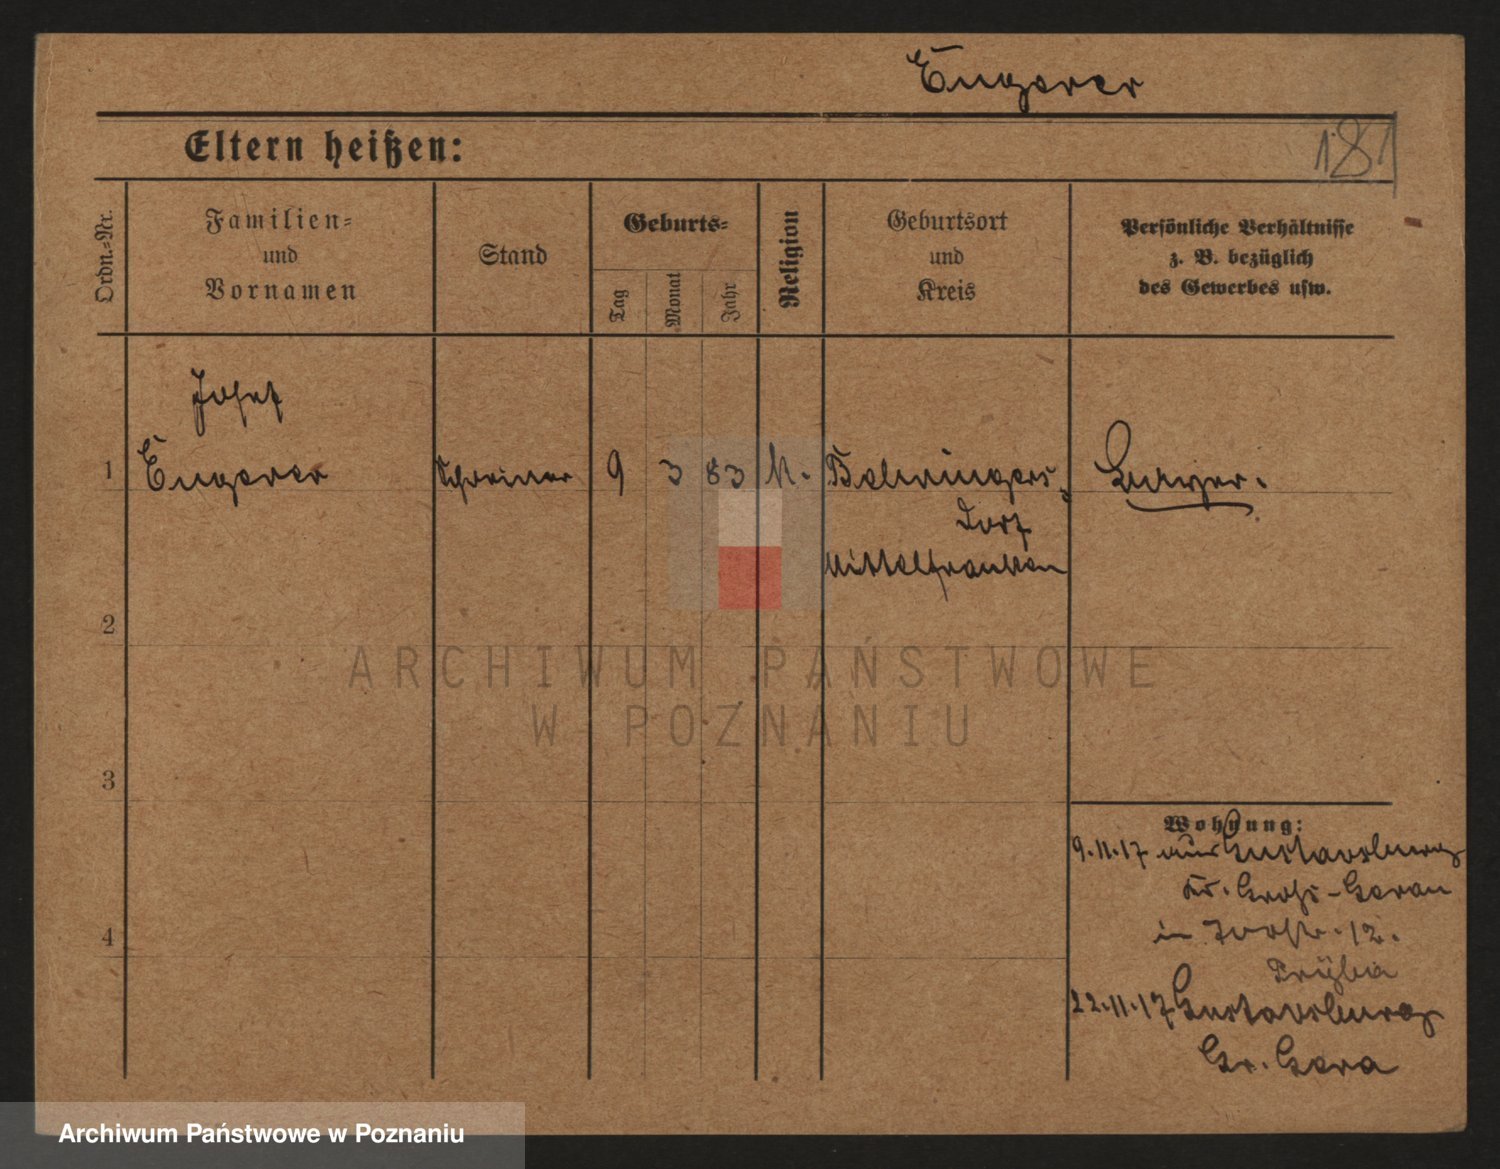 Engerer
Eltern heißen:
181
Ordn.-Nr.
Familien-
und
Vornamen
Stand
Geburts-
Tag
Monat
Jahr
Religion
Geburtsort
und
Kreis
Persönliche Verhältnisse
z. B. bezüglich
des Gewerbes usw.
Josef
1 Engerer Schreiner 9 3 83 K. Behringers- Bayer.
dorf
Mittelfranken
2
3
4
Wohnung:
9.11.17 aus Gustavsburg
Kr. Groß-Gerau
in Forststr. 12.
22.11.17 Gustavsburg
Gr. Gera
ARCHIWUM PAŃSTWOWE
W POZNANIU
Archiwum Państwowe w Poznaniu